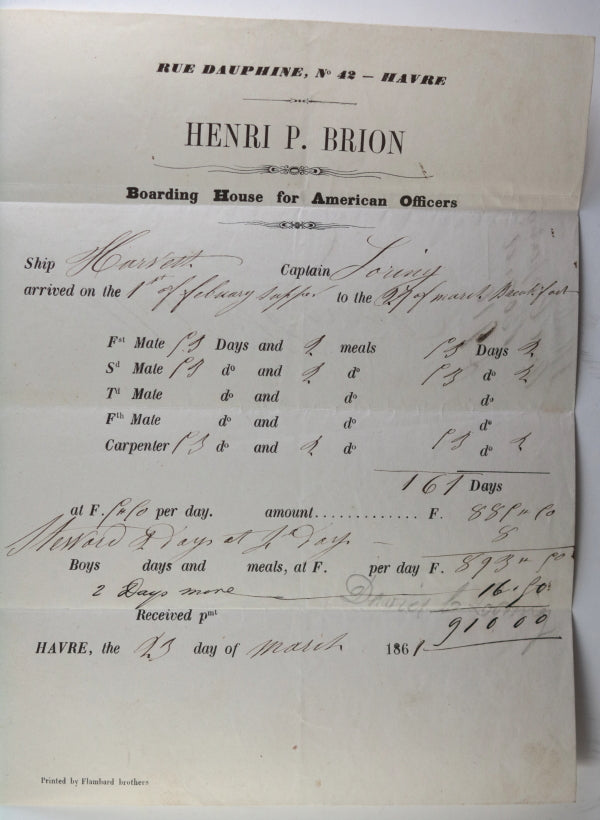 RUE DAUPHINE, Nº 42 – HAVRE
HENRI P. BRION
Boarding House for American Officers
Ship Harvest Captain Loring
arrived on the 1st of febuary supper to the 27 of march Breakfast
Fst Mate 53 Days and 2 meals 53 Days 2
Sd Mate 53 do and 2 do 53 do 2
Td Mate do and do do
Fth Mate do and do do
Carpenter 53 do and 2 do 53 do 2
161 Days
at F. 5"50 per day. amount............. F. 885"50
Steward 2 Days at Days – 8
Boys days and meals, at F. per day F. 893"50
2 Days more 16.50
Daniel Loring
Received pmt 910 00
HAVRE, the day of march 1861
Printed by Flambard brothers